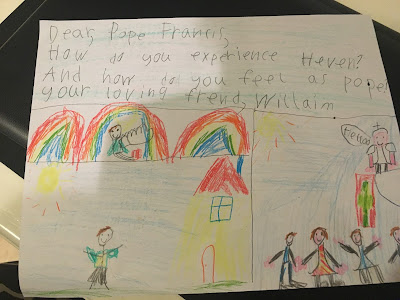 Dear, Pope Francis,
How do you experience Heven?
And how do you feel as pope?
your loving frend, Willaim